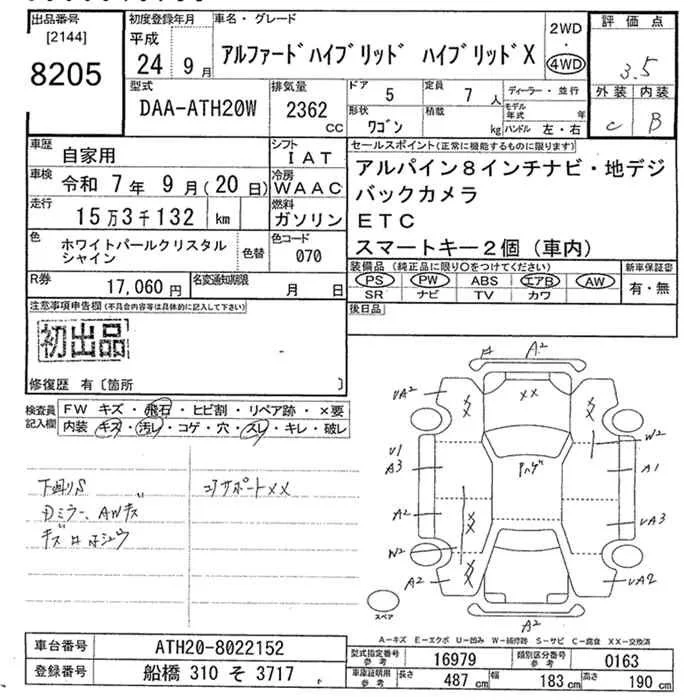 出品番号
[2144]
8205
初度登録年月
平成
24 9月
車名・グレード
アルファードハイブリッド ハイブリッドX
2WD
・
4WD
評価点
3.5
外装 内装
C B
型式
DAA-ATH20W
排気量
2362
CC
ドア
5
定員
7 人
形状
ワゴン
積載
kg
ディーラー・並行
モデル年式 年
ハンドル 左・右
車歴
自家用
シフト
IAT
車検
令和 7年 9月(20日)
冷房
WAAC
走行
15万3千132 km
燃料
ガソリン
色
ホワイトパールクリスタル
シャイン
色替
色コード
070
R券
17,060円
名変通知期限
月 日
セールスポイント(正常に機能するものに限ります)
アルパイン8インチナビ・地デジ
バックカメラ
ETC
スマートキー2個(車内)
装備品(純正品に限り○をつけてください)
PS PW ABS エアB AW
SR ナビ TV カワ
新車保証書
有・無
後日品
注意事項申告欄(不具合内容等は具体的に記入して下さい)
初出品
修復歴 有〔箇所 〕
検査員
記入欄
FW キズ・飛石・ヒビ割・リペア跡・×要
内装 キズ・汚レ・コゲ・穴・スレ・キレ・破レ
下回りS
Dミラー、AWキズ
コアサポートXX
A2
UA2
XX
XX
W2
U1
A3
A1
A2
XX
UA3
W2
XX
XX
A2
UA2
A2
スペア
A-キズ E-エクボ U-凹み W-補修跡 S-サビ C-腐食 XX-交換済
車台番号
ATH20-8022152
登録番号
船橋 310 そ 3717
型式指定番号
参考
16979
類別区分番号
参考
0163
車庫証明用
参考
長さ
487 cm
幅
183 cm
高さ
190 cm